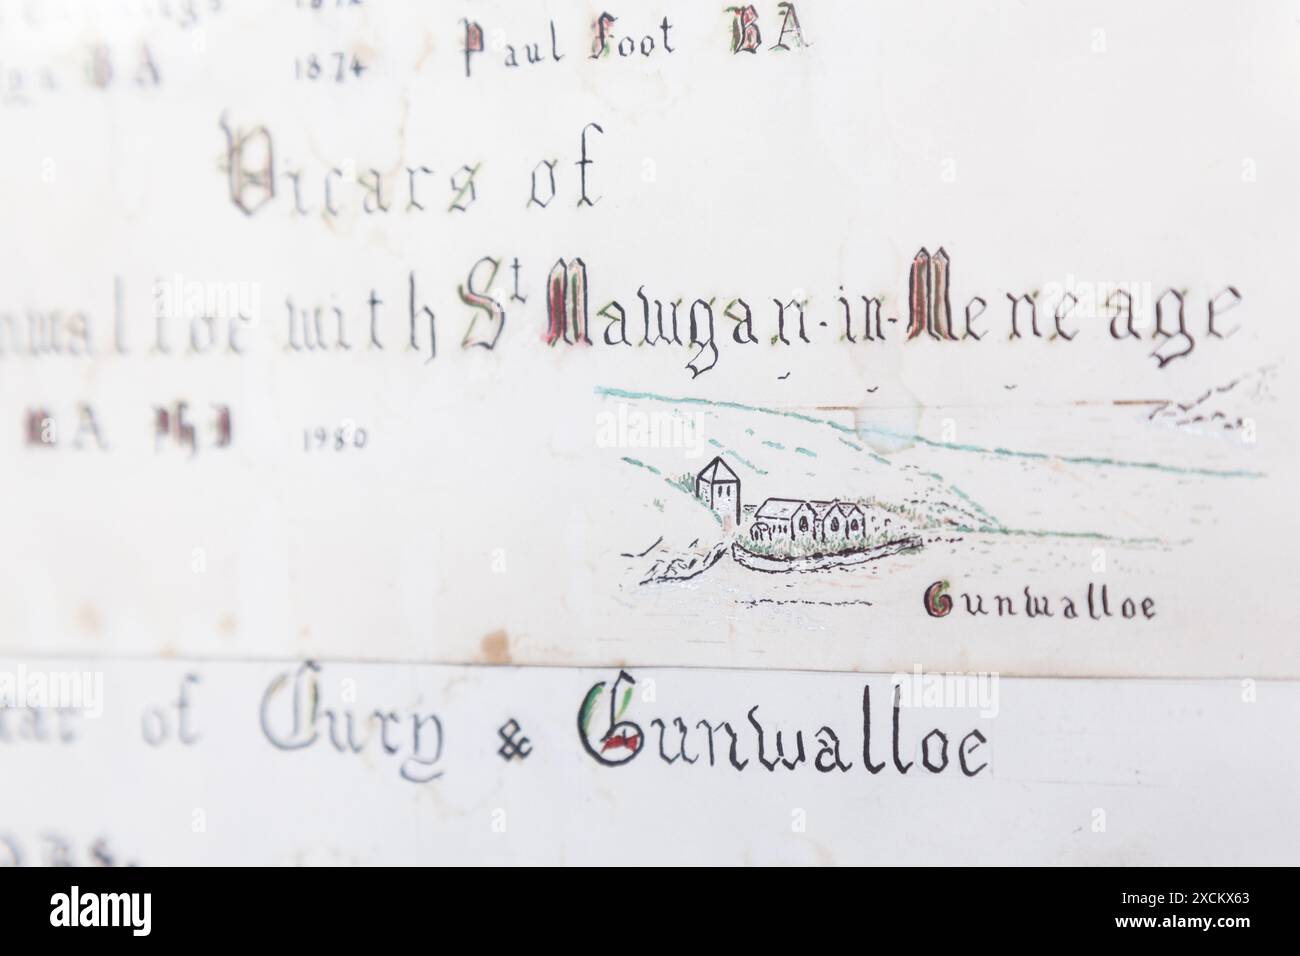 1874 Paul Foot BA
Vicars of
with St Mawgan-in-Meneage
BA Phl 1980
Gunwalloe
of Cury & Gunwalloe
alamy
Image ID: 2XCKX63
www.alamy.com